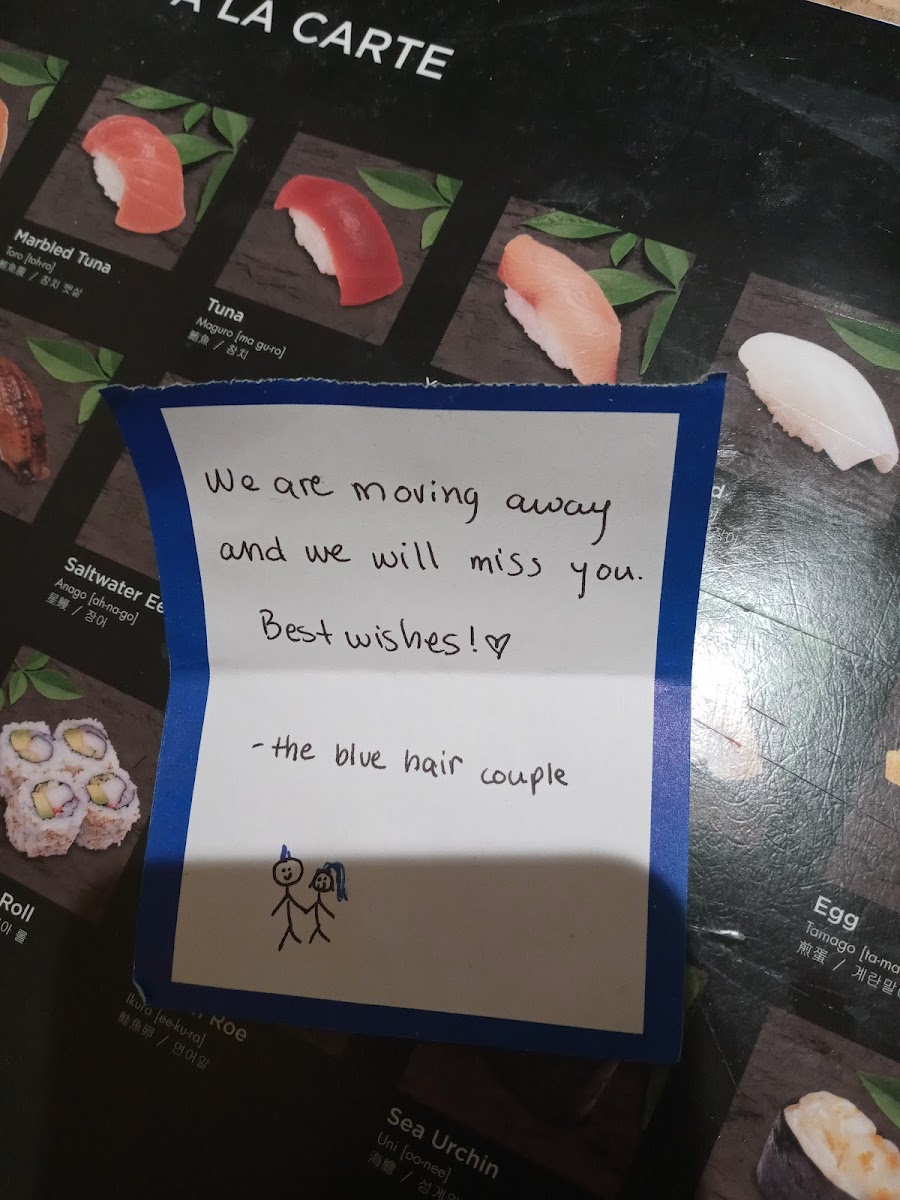 A LA CARTE
Marbled Tuna
Toro [toh-ro]
/ 참치 뱃살
Tuna
Maguro [ma gu-ro]
鮪魚 / 참치
We are moving away
and we will miss you.
Best wishes!♡
- the blue hair couple
Saltwater Ee
Anago [ah-na-go]
星鰻 / 장어
Roll
아 롤
Egg
Tamago [ta-ma
煎蛋 / 계란말
Roe
Ikura [ee-ku-ra]
鮭魚卵 / 연어알
Sea Urchin
Uni [oo-nee]
海膽 / 성게알